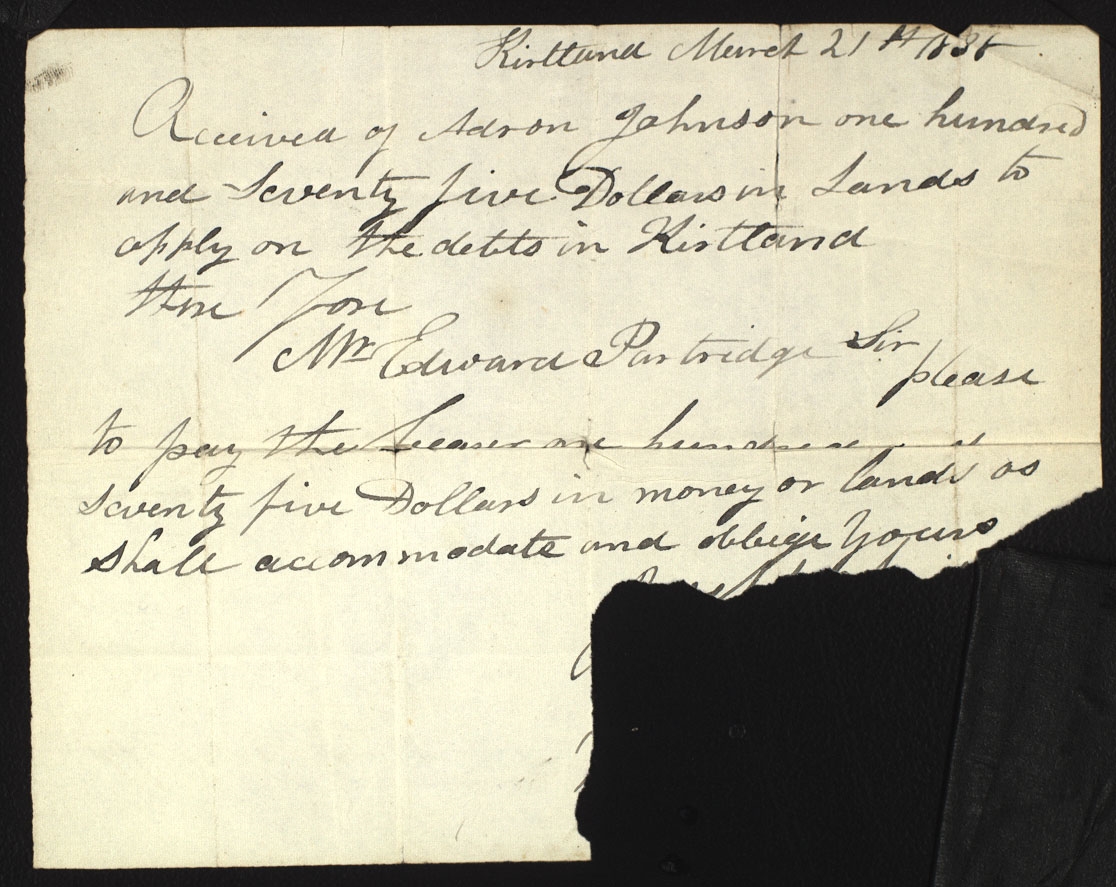 Kirtland March 21st 1838
Received of Adron Johnson one hundred
and Seventy five Dollars in Lands to
apply on the debts in Kirtland
there fore
Mr Edward Partridge Sir please
to pay the bearer one hundred
seventy five Dollars in money or lands as
shall accommodate and obbige Yours